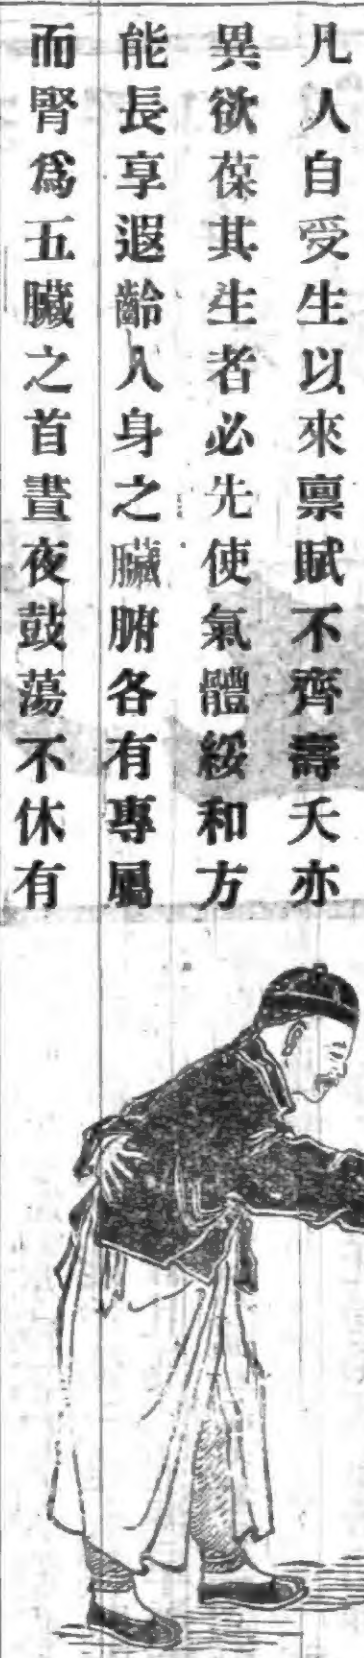 凡人自受生以來禀賦不齊壽夭亦
異欲葆其生者必先使氣體綏和方
能長享遐齡人身之臟腑各有專屬
而腎爲五臟之首晝夜鼓蕩不休有